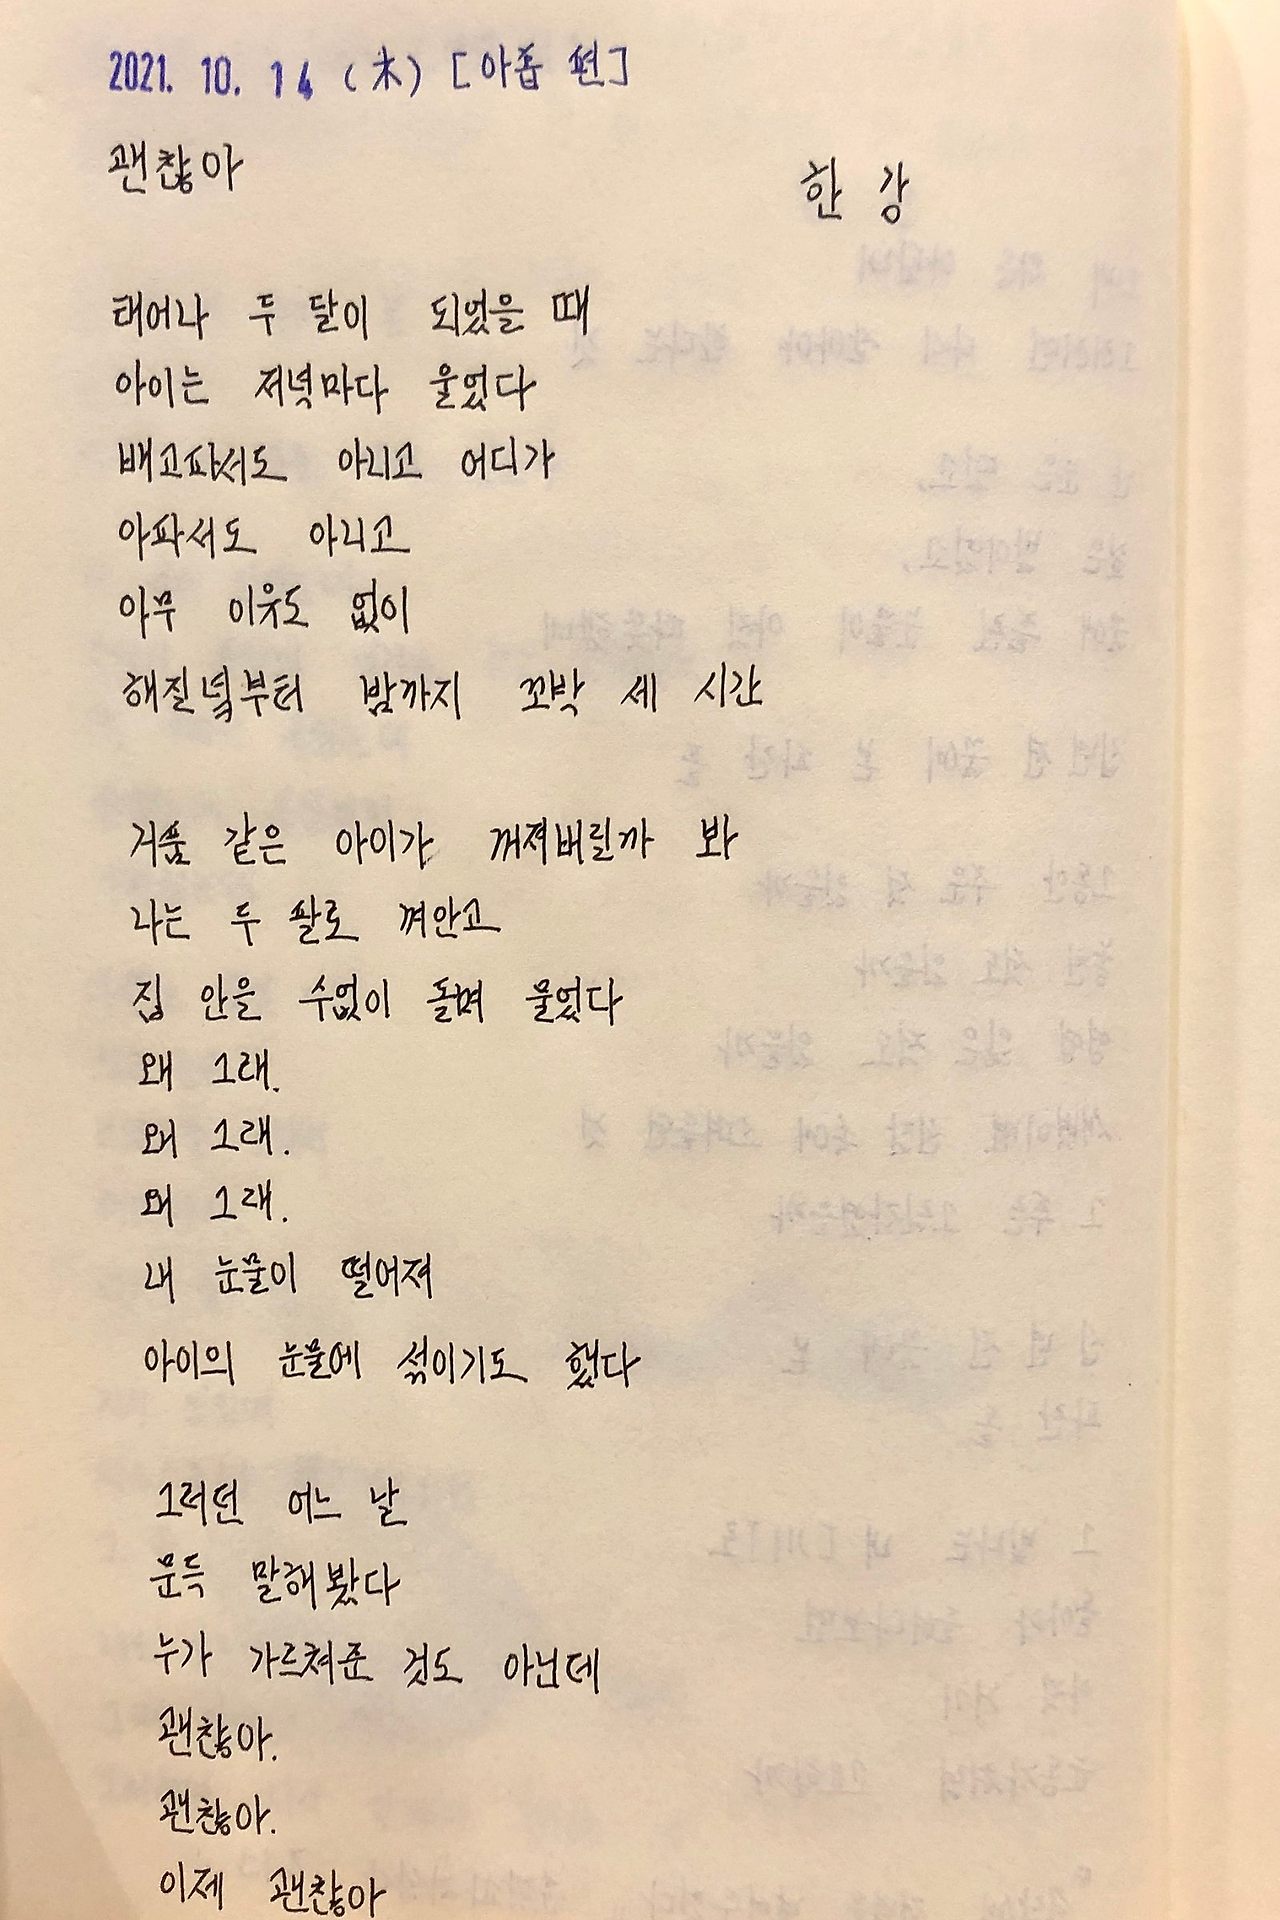 2021. 10. 14 (木) [아홉 편]
괜찮아 한 강
태어나 두 달이 되었을 때
아이는 저녁마다 울었다
배고파서도 아니고 어디가
아파서도 아니고
아무 이유도 없이
해질녘부터 밤까지 꼬박 세 시간
거품 같은 아이가 꺼져버릴까 봐
나는 두 팔로 껴안고
집 안을 수없이 돌며 물었다
왜 그래.
왜 그래.
왜 그래.
내 눈물이 떨어져
아이의 눈물에 섞이기도 했다
그러던 어느 날
문득 말해봤다
누가 가르쳐준 것도 아닌데
괜찮아.
괜찮아.
이제 괜찮아